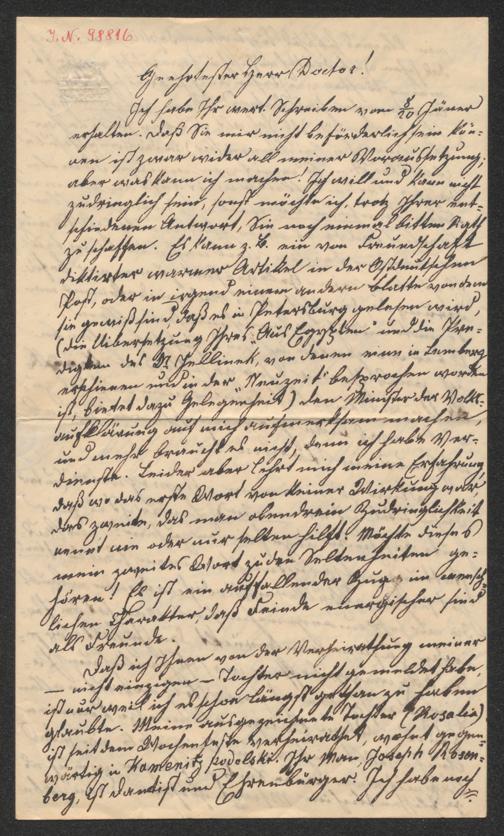 J. N. 98816
Geehrtester Herr Doctor!
Ich habe Ihr wert. Schreiben vom 8/20 Jänner
erhalten. Daß Sie mir nicht beförderlich sein kön-
nen ist zwar wider all meiner Voraussetzung;
aber was kann ich machen! Ich will und kann nicht
zudringlich sein, sonst möchte ich, trotz Ihrer ent-
schiedenen Antwort, Sie noch einmal bitten Rath
zu schaffen. Es kann z. B. ein von Freundschaft
diktirter warmer Artikel in der Ostdeutschen
Post, oder in irgend einem andern Blatte von dem
sie gewiß sind, daß es in Petersburg gelesen wird,
(die Uibersetzung Ihres "Aus Egypten" und die Pre-
digten des Dr Jellinek, von denen nun in Lemberg
erschienen und in der "Neuzeit" besprochen worden
ist, bietet dazu Gelegenheit) den Minister der Volks-
aufklärung auf mich aufmerksam machen,
und mehr braucht es nicht, denn ich habe Ver-
dienste. Leider aber lehrt mich meine Erfahrung
daß wo das erste Wort von keiner Wirkung war
das zweite, das man obendrein Zudringlichkeit
nennt nie oder nur selten hilft. Möchte dieses
mein zweites Wort zu den Seltenheiten ge-
hören! Es ist ein auffallender Zug im mensch-
lichen Charakter, daß Feinde energischer sind
als Freunde.
Daß ich Ihnen von der Verheirathung meiner
— nicht einzigen — Tochter nicht gemeldet habe,
ist nur weil ich es schon längst gethan zu haben
glaubte. Meine ausgezeichnete Tochter (Rosalia)
ist seit dem Wochenfeste verheirathet, wohnt gegen-
wärtig in Kamenitz podolski. Ihr Man, Joseph Rosen-
berg, ist Dentist und Ehrenbürger. Ich habe noch